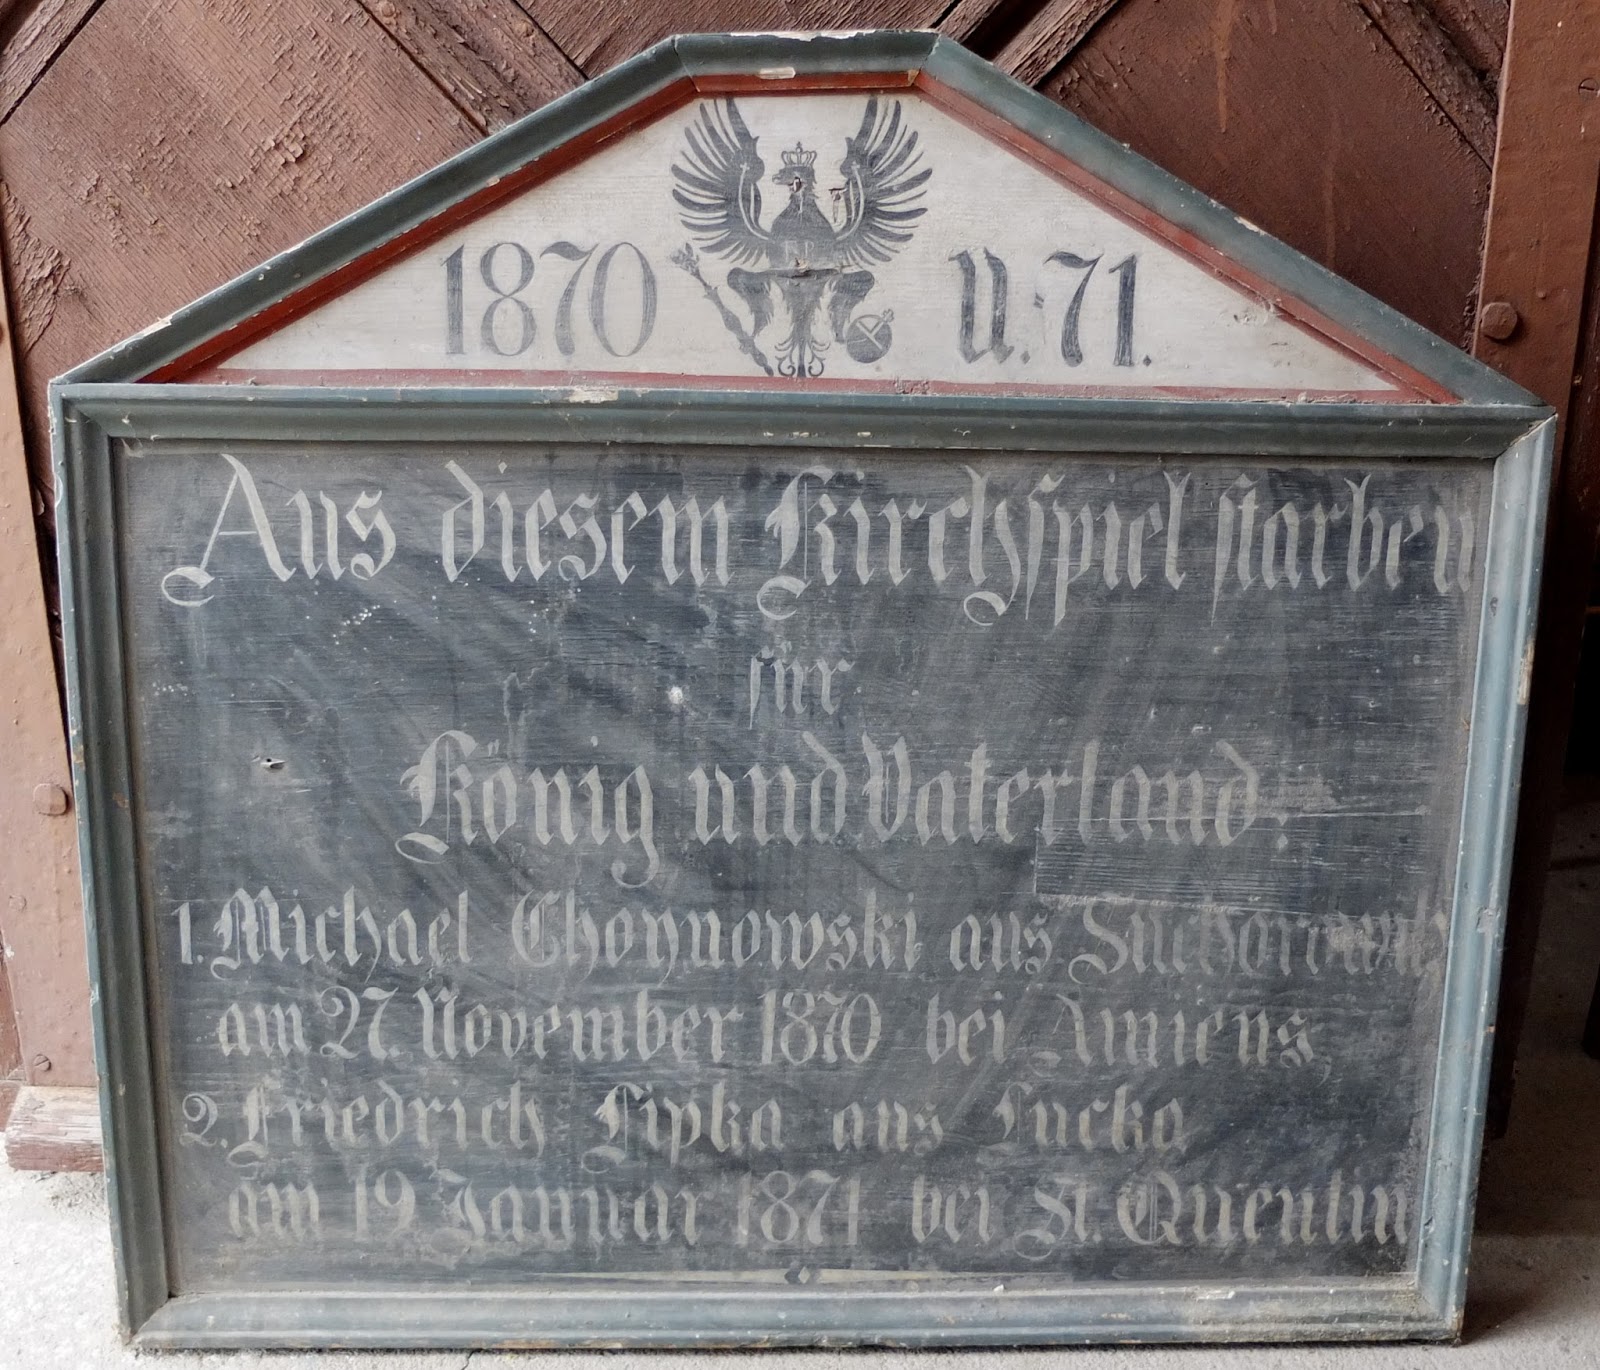 1870 u. 71.
Aus diesem Kirchspiel starben
für
König und Vaterland:
1. Michael Choynowski aus
am 27. November 1870 bei Amiens,
2. Friedrich Lipka aus Lucka
am 19 Januar 1871 bei St. Quentin